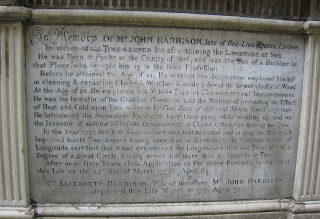 In Memory of Mr. JOHN HARRISON, late of Red-Lion Square, London,
Inventor of the TIME-KEEPER for ascertaining the LONGITUDE at Sea.
He was Born at Foulby in the County of York, and was the Son of a Builder at
that Place, who brought him up to the same Profession.
Before he attained the Age of 21, He without any Instruction employed himself
in cleaning & repairing Clocks & Watches & made a few of the former chiefly of Wood.
At the Age of 25 He employed his Whole Time in Chronometrical Improvements
He was the Inventor of the Gridiron Pendulum and the Method of preventing the Effect
of Heat and Cold upon Time keepers by Two Bars of different Metals fixed together
He Introduced the Secondary Spring to keep them going while winding up, and was
the Inventor of most or all the Improvements in Clocks & Watches during his Time
In the Year 1735 his first Time keeper was sent to Lisbon and in 1764 his then much
Improved fourth Time keeper having been sent to Barbadoes the Commissioners of
Longitude certified that it had determined the Longitude within one Third of Half a
Degree of a great Circle, having erred not more than 40 Seconds in Time.
After near Sixty Years close Application to the above Pursuits, He departed
this Life on the 24th Day of March 1776, Aged 83.
Mrs. ELIZABETH HARRISON, Wife of the above Mr. JOHN HARRISON,
departed this Life March 1777, Aged 72.